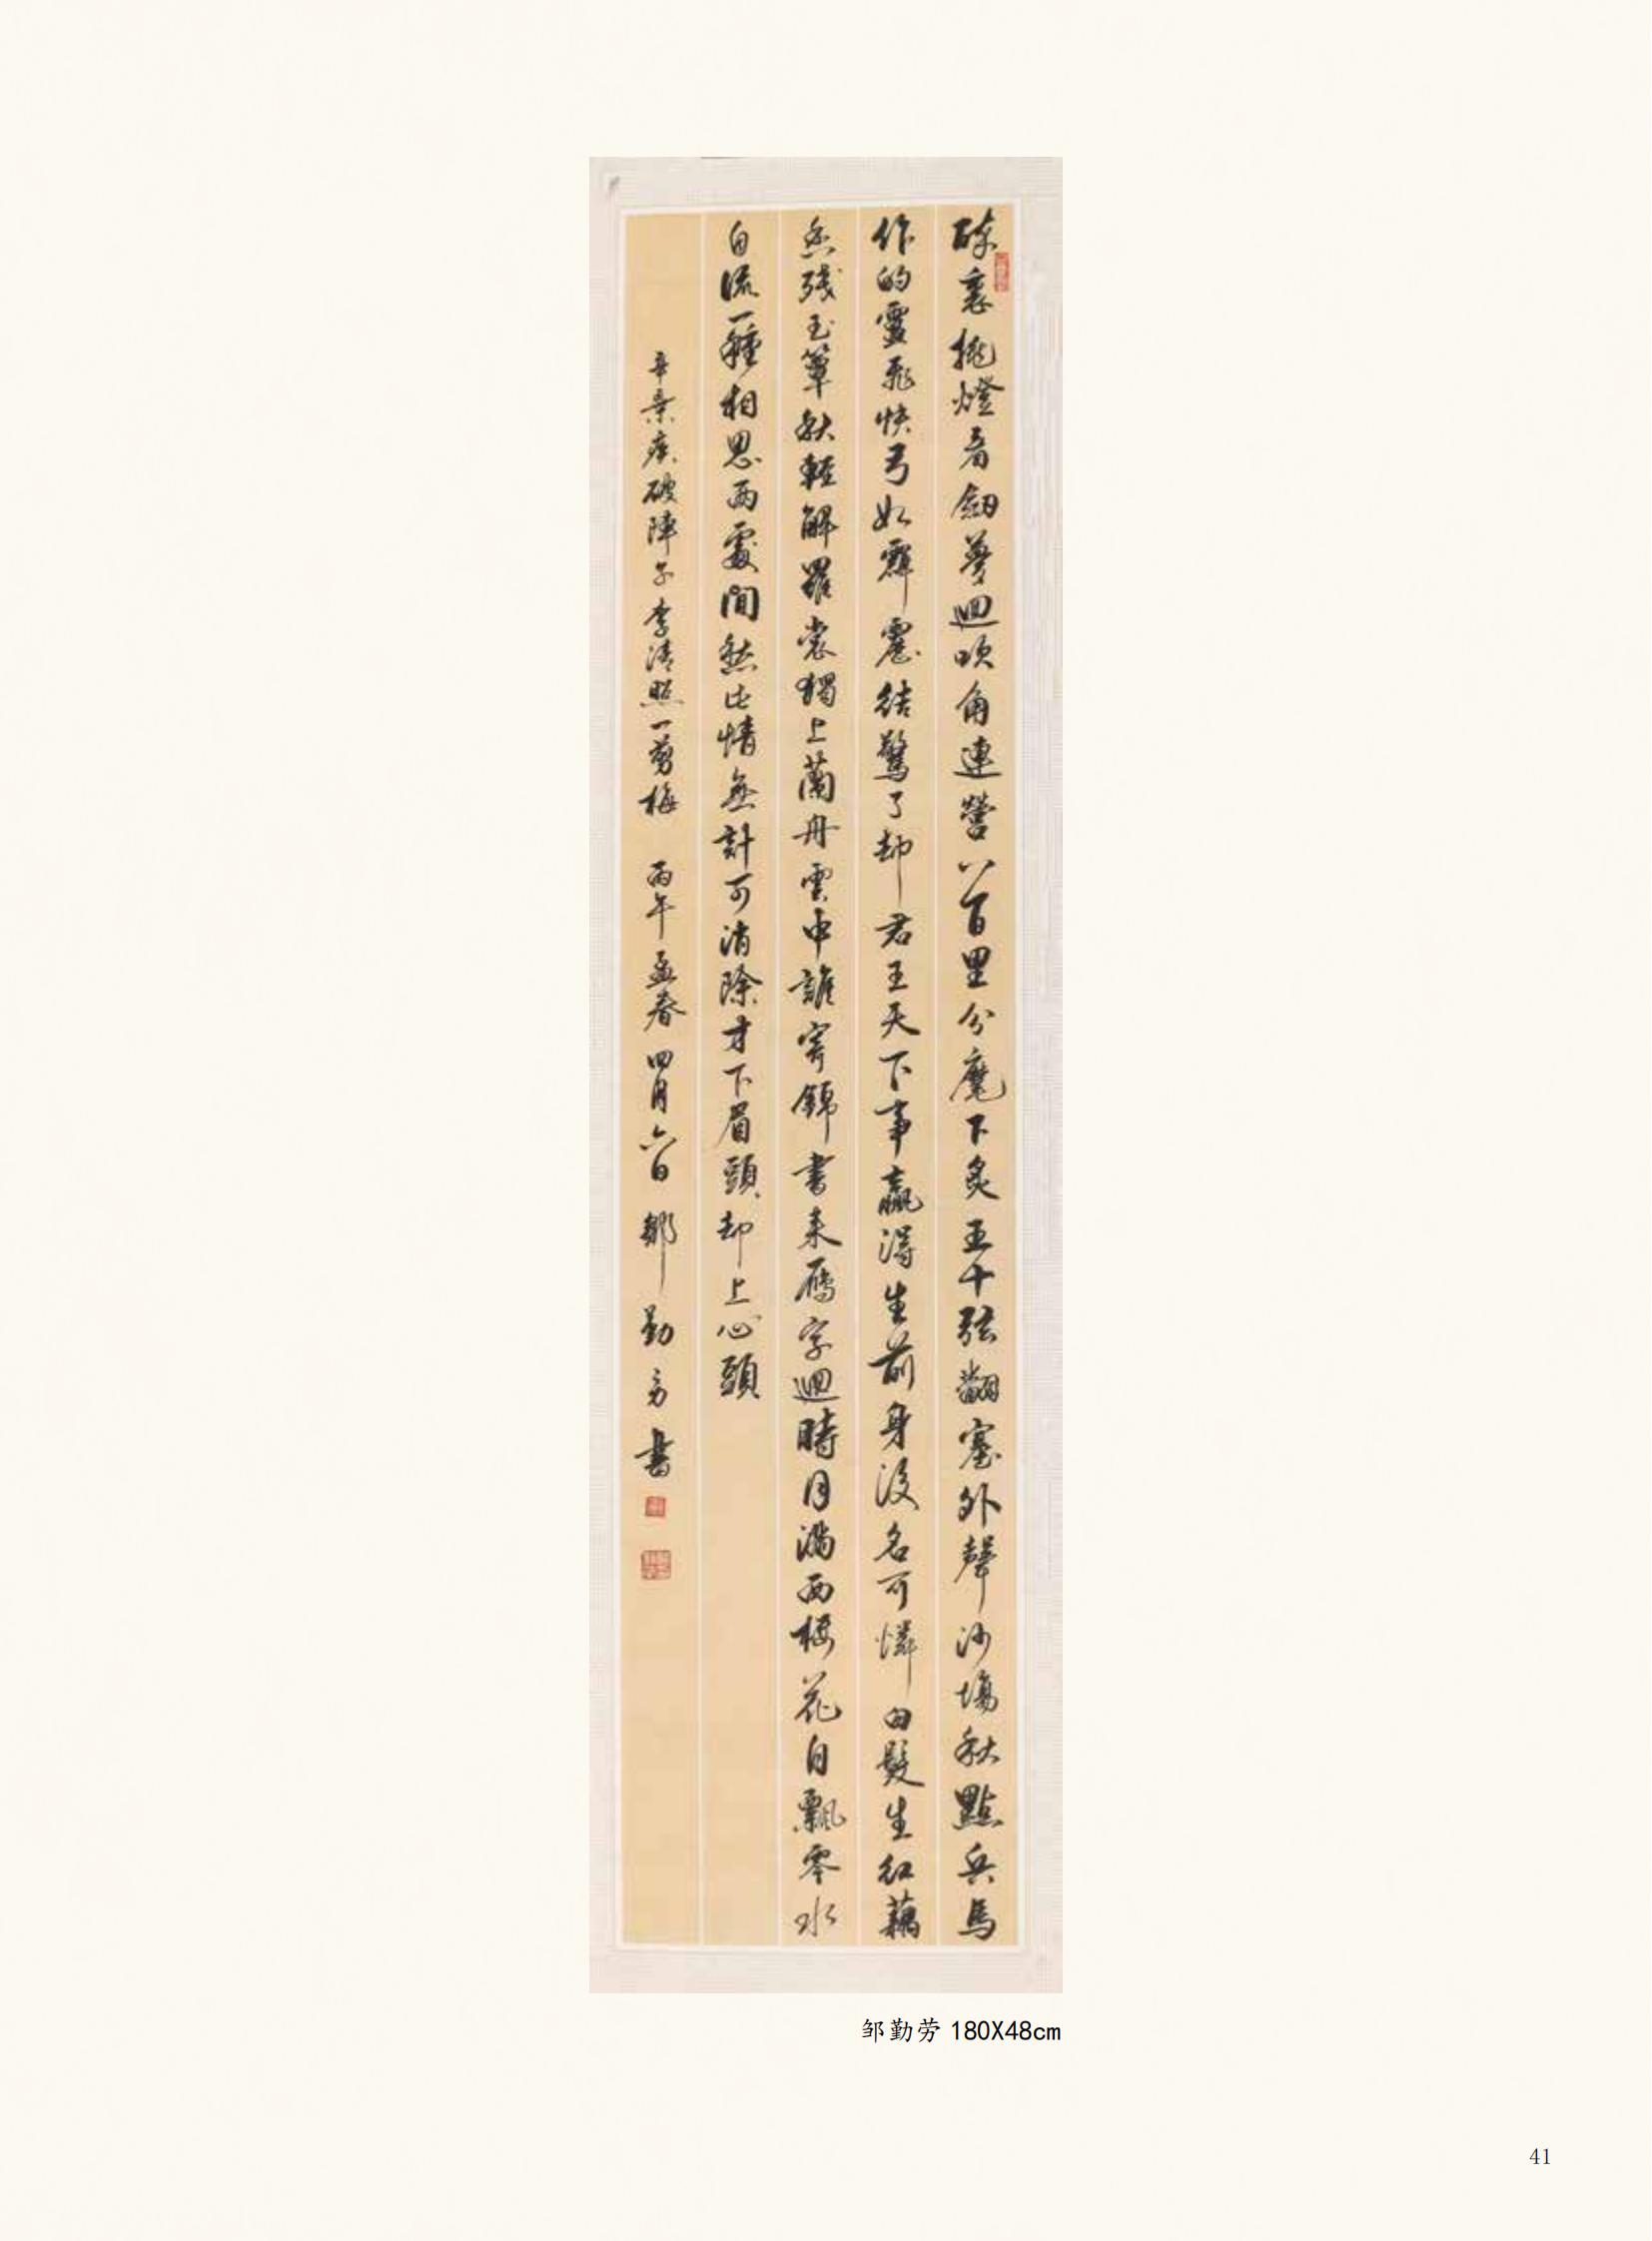 醉裏挑燈看劍夢迴吹角連營八百里分麾下炙五十弦翻塞外聲沙場秋點兵馬
作的盧飛快弓如霹靂結驚了却君王天下事贏得生前身後名可憐白髮生紅藕
香殘玉簟秋輕解羅裳獨上蘭舟雲中誰寄錦書来雁字迴時月滿西樓花自飄零水
自流一種相思兩處閒愁此情無計可消除才下眉頭却上心頭
辛棄疾破陣子李清照一剪梅 丙午孟春四月六日 鄒勤勞書
邹勤劳 180X48cm
41